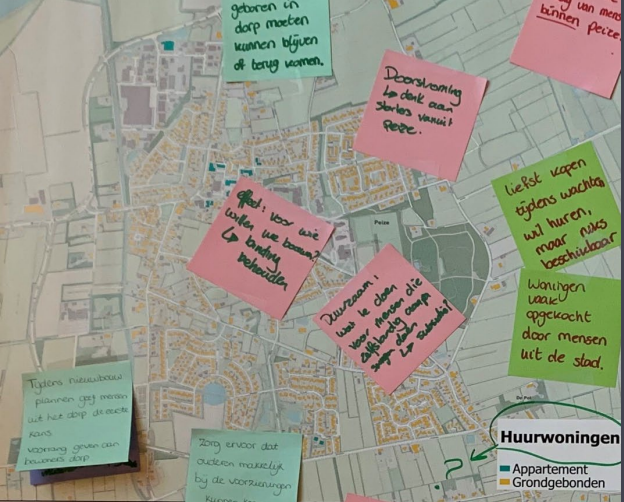 geboren in
dorp moeten
kunnen blijven
of terug komen.
van mens
binnen Peize.
Doorstroming
↳ denk aan
starters vanuit
Peize.
Liefst kopen
tijdens wachten
wil huren,
maar niks
beschikbaar
effect: voor wie
willen we bouwen?
↳ binding
behouden
Peize
Duurzaam!
wat te doen
voor mensen die
zelfstandig
doen
↳ subsidie?
Woningen
vaak
opgekocht
door mensen
uit de stad.
Tijdens nieuwbouw
plannen geef mensen
uit het dorp de eerste
kans.
voorrang geven aan
bewoners dorp
Zorg ervoor dat
ouderen makkelijk
bij de voorzieningen
kunnen
Huurwoningen
Appartement
Grondgebonden